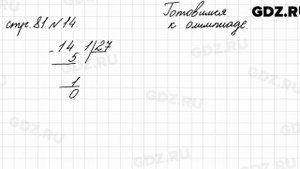 Готовимся
к олимпиаде.
стр. 81 №14
- 14 1 | 27
5
1
0
GDZ.RU
GDZ.RU
GDZ.RU
GDZ.RU
GDZ.RU